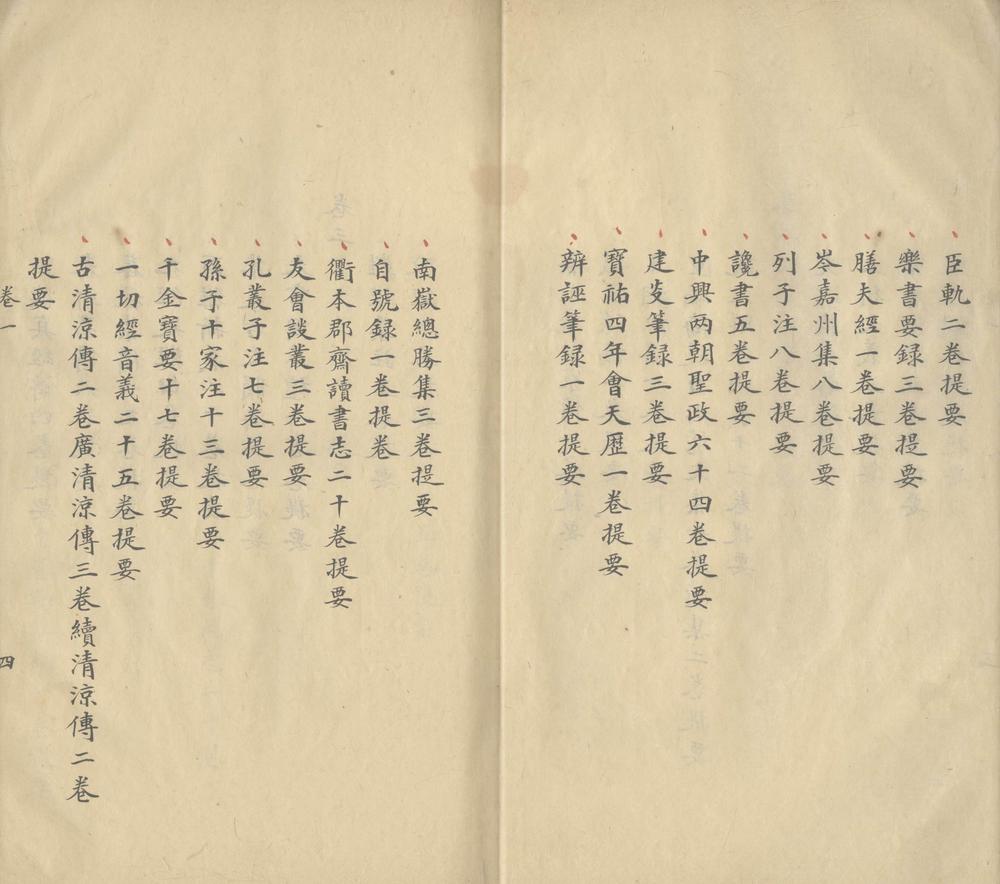 臣軌二卷提要
樂書要録三卷提要
膳夫經一卷提要
岑嘉州集八卷提要
列子注八卷提要
讒書五卷提要
中興两朝聖政六十四卷提要
建炎筆録三卷提要
寶祐四年會天歷一卷提要
辨誣筆録一卷提要
南嶽總勝集三卷提要
自號録一卷提卷
衢本郡齋讀書志二十卷提要
友會談叢三卷提要
孔叢子注七卷提要
孫子十家注十三卷提要
千金寶要十七卷提要
一切經音義二十五卷提要
古清涼傳二卷廣清涼傳三卷續清涼傳二卷
提要
卷一
四